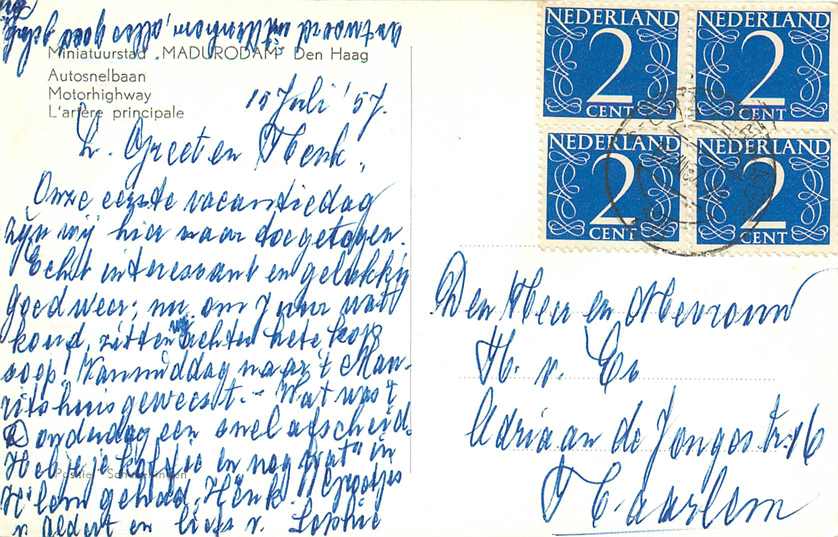 antwoord uit Lenghem, alles goed
Miniatuurstad „MADURODAM” Den Haag
Autosnelbaan
Motorhighway
L'artère principale
15 Juli '57.
L. Greet en Henk,
Onze eerste vacantiedag
zijn wij hier naar toegetogen.
Echt interessant en gelukkig
goed weer; nu om 7 uur wat
koud, zitten wij achter hete kop
soep! Vanmiddag naar 't Mau-
ritshuis geweest. - Wat was 't
Donderdag een snel afscheid.
Heb je koffie en nog wat in
H'lem gehad, Henk? Groetjes
v. Aldert en liefs v. Sophie
NEDERLAND
2
CENT
NEDERLAND
2
CENT
NEDERLAND
2
CENT
NEDERLAND
2
CENT
Den Heer en Mevrouw
H. v. Es
Adriaan de Jongestr. 16
Haarlem